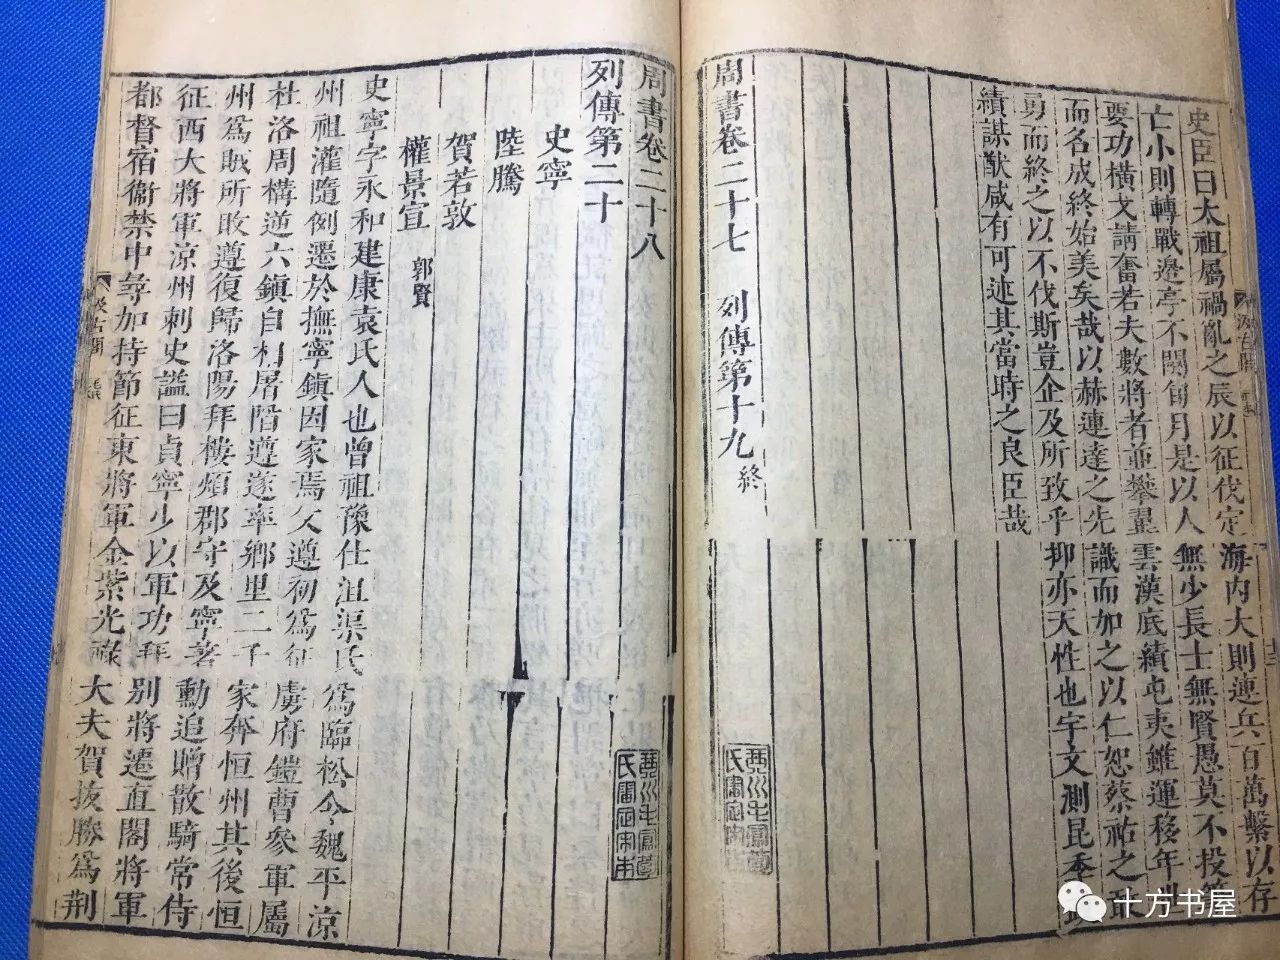 史臣曰太祖屬禍亂之辰以征伐定海内大則連兵百萬繫以存
亡小則轉戰邊亭不闕旬月是以人無少長士無賢愚莫不投筆
要功橫戈請奮若夫數將者並攀翼雲漢底績屯夷雖運移年
而名成終始美矣哉以赫連達之先識而加之以仁恕蔡祐之敢
勇而終之以不伐斯豈企及所致乎抑亦天性也宇文測昆季
績謀猷咸有可述其當時之良臣哉
周書卷二十七 列傳第十九終
周書卷二十八
列傳第二十
史寧
陸騰
賀若敦
權景宣 郭賢
史寧字永和建康袁氏人也曾祖豫仕沮渠氏爲臨松令魏平涼
州祖灌隨例遷於撫寧鎮因家焉父遵初爲征虜府鎧曹參軍屬
杜洛周構逆六鎮自相屠陷遵遂率鄉里二千家奔恒州其後恒
州爲賊所敗遵復歸洛陽拜樓煩郡守及寧著勳追贈散騎常侍
征西大將軍涼州刺史謚曰貞寧少以軍功拜別將遷直閣將軍
都督宿衞禁中尋加持節征東將軍金紫光祿大夫賀拔勝爲荆
汲古閣
十方书屋